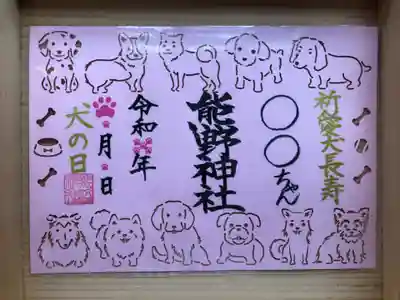 祈愛犬長寿
〇〇ちゃん
熊野神社
令和　年
・月・日
犬の日